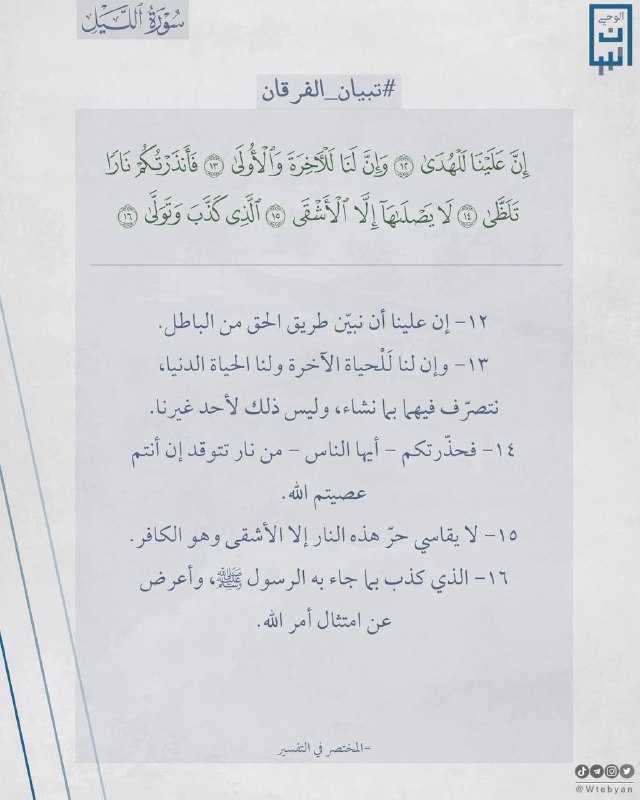 سُورَةُ اللَّيْل
الوحيي
#تبيان_الفرقان
إِنَّ عَلَيْنَا لَلْهُدَىٰ ١٢ وَإِنَّ لَنَا لَلْآخِرَةَ وَالْأُولَىٰ ١٣ فَأَنذَرْتُكُمْ نَارًا
تَلَظَّىٰ ١٤ لَا يَصْلَاهَا إِلَّا الْأَشْقَى ١٥ الَّذِي كَذَّبَ وَتَوَلَّىٰ ١٦
١٢- إن علينا أن نبيّن طريق الحق من الباطل.
١٣- وإن لنا لَلْحياة الآخرة ولنا الحياة الدنيا،
نتصرّف فيهما بما نشاء، وليس ذلك لأحد غيرنا.
١٤- فحذّرتكم - أيها الناس - من نار تتوقد إن أنتم
عصيتم الله.
١٥- لا يقاسي حرّ هذه النار إلا الأشقى وهو الكافر.
١٦- الذي كذب بما جاء به الرسول ﷺ، وأعرض
عن امتثال أمر الله.
-المختصر في التفسير
@Wtebyan